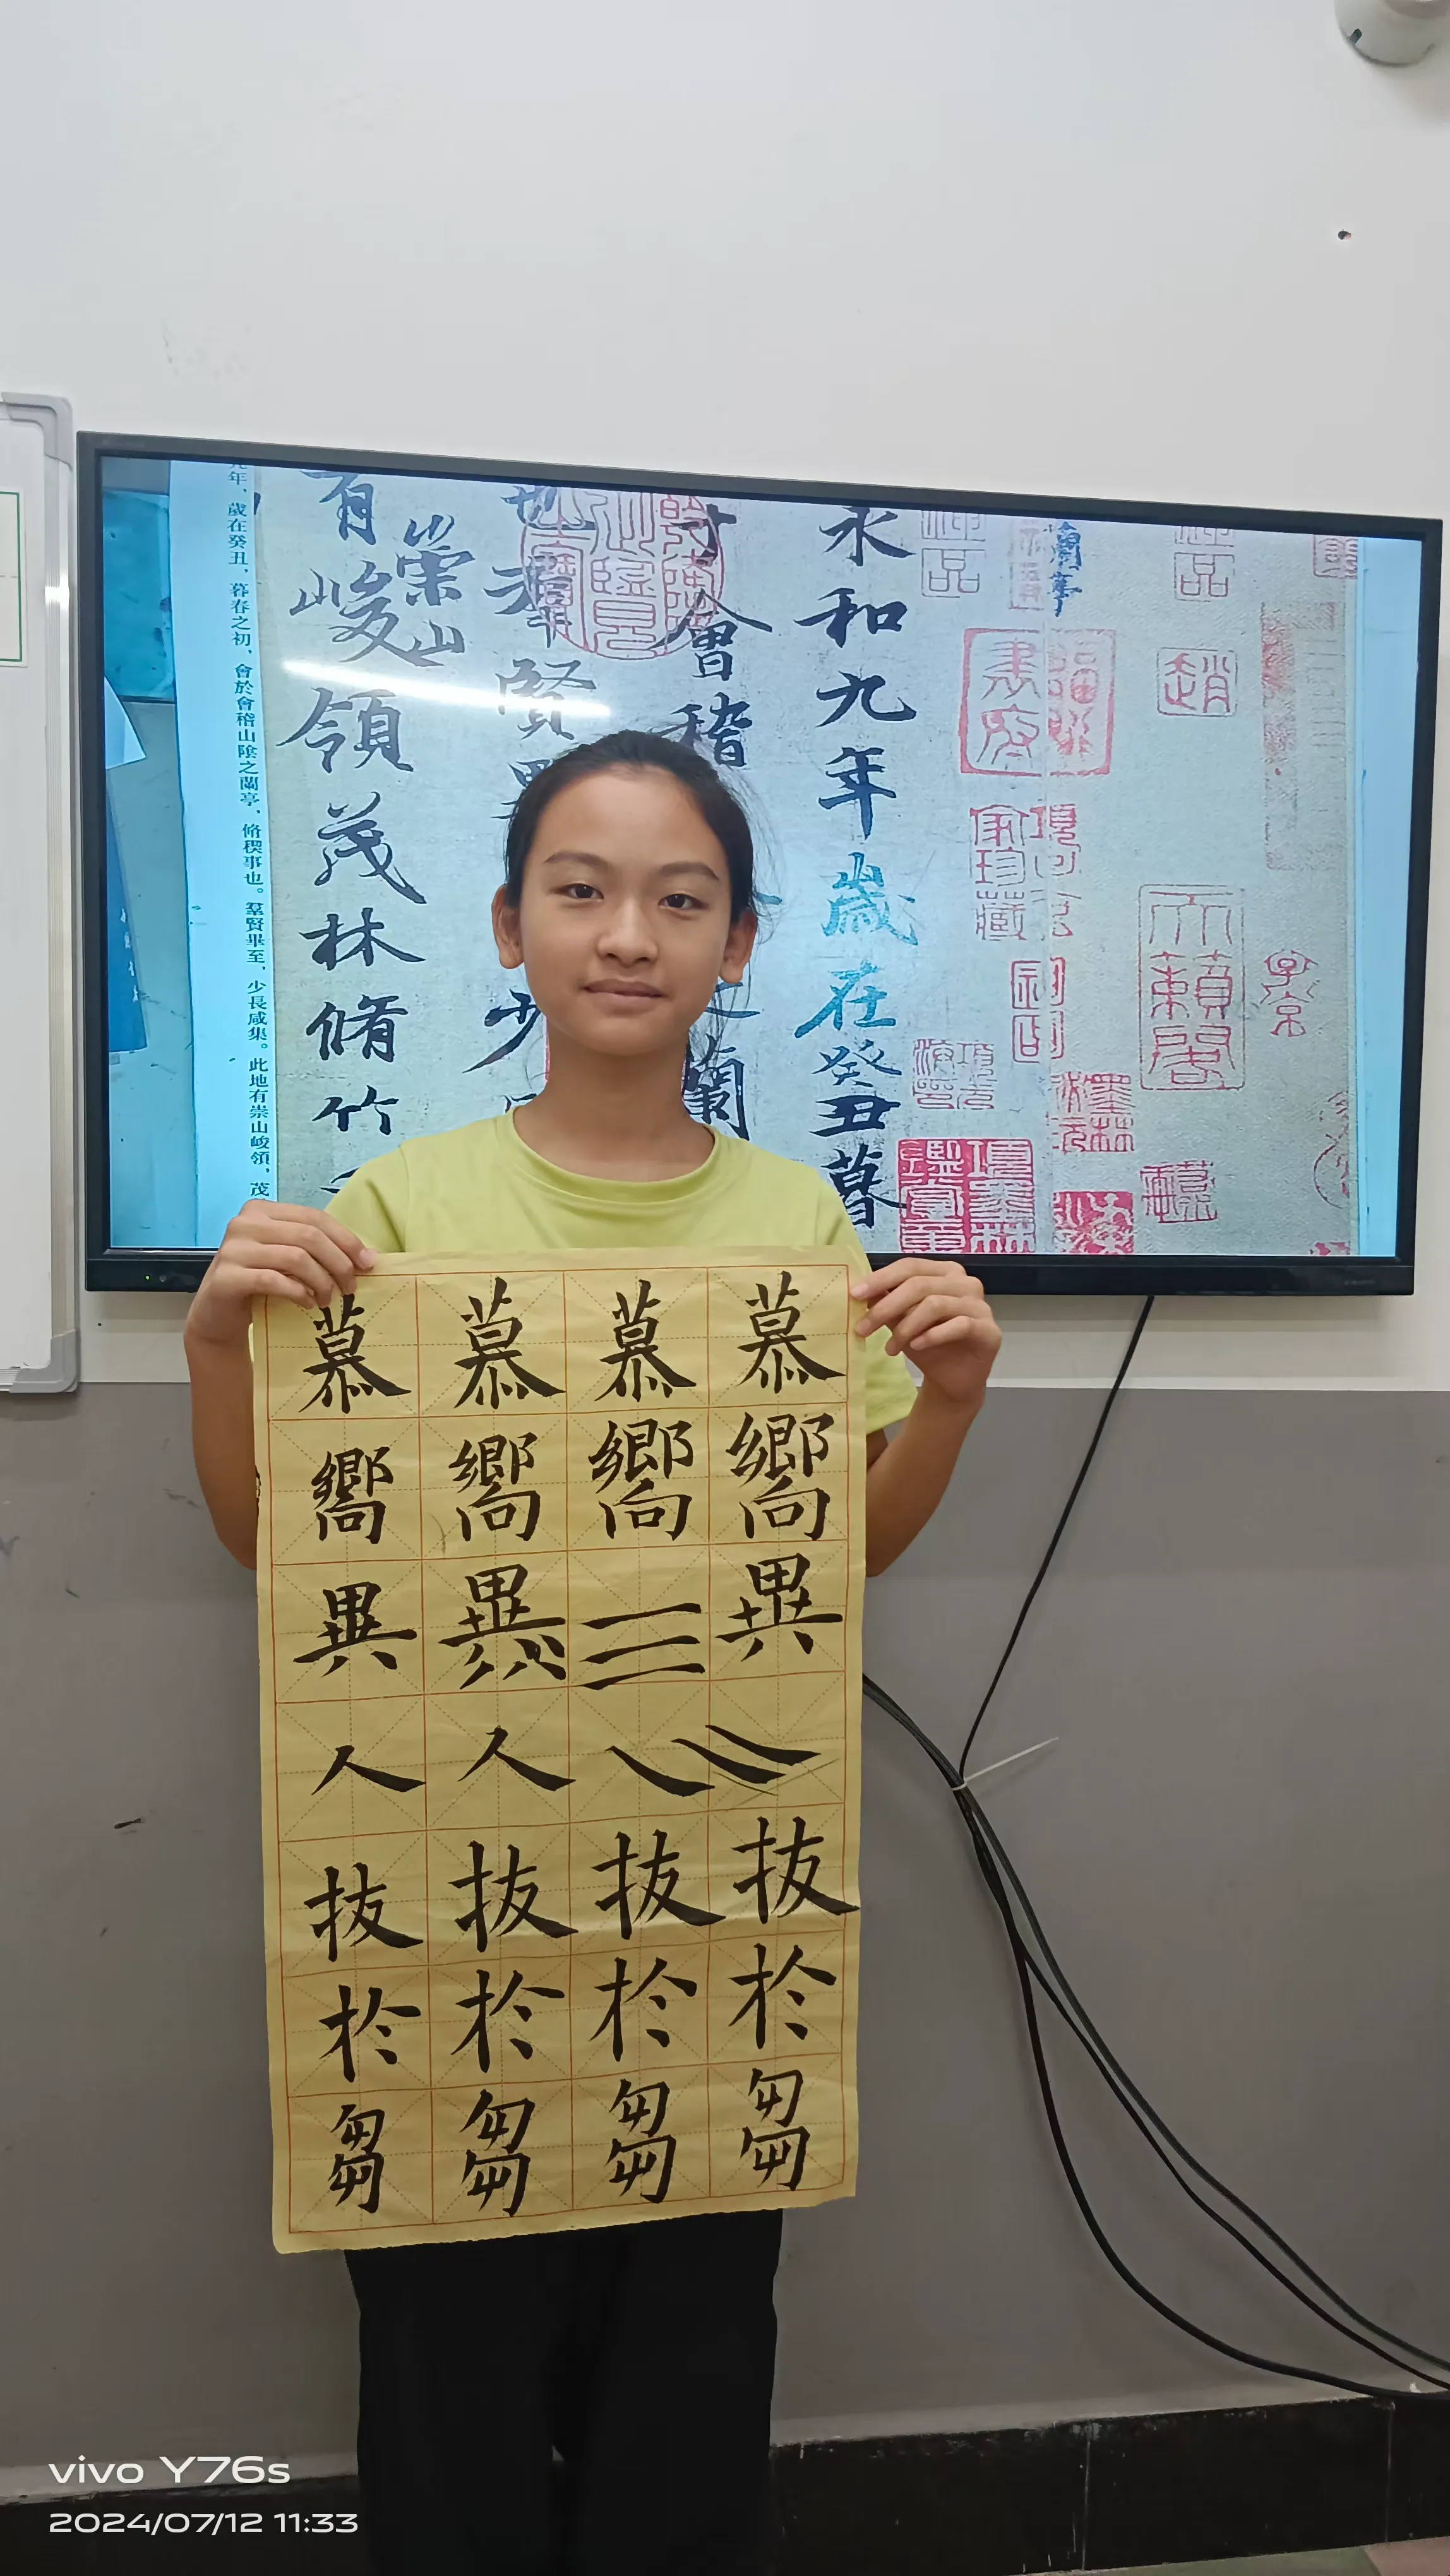 趙
天籟閣
子京
永和九年歲在癸丑暮
會稽
蘭
羣賢
少
有崇山峻領茂林脩竹
年，歲在癸丑，暮春之初，會於會稽山陰之蘭亭，脩稧事也。羣賢畢至，少長咸集。此地有崇山峻領，茂
慕 慕 慕 慕
嚮 嚮 嚮 嚮
異 異 三 異
人 人
拔 拔 拔 拔
於 於 於 於
芻 芻 芻 芻
vivo Y76s
2024/07/12 11:33